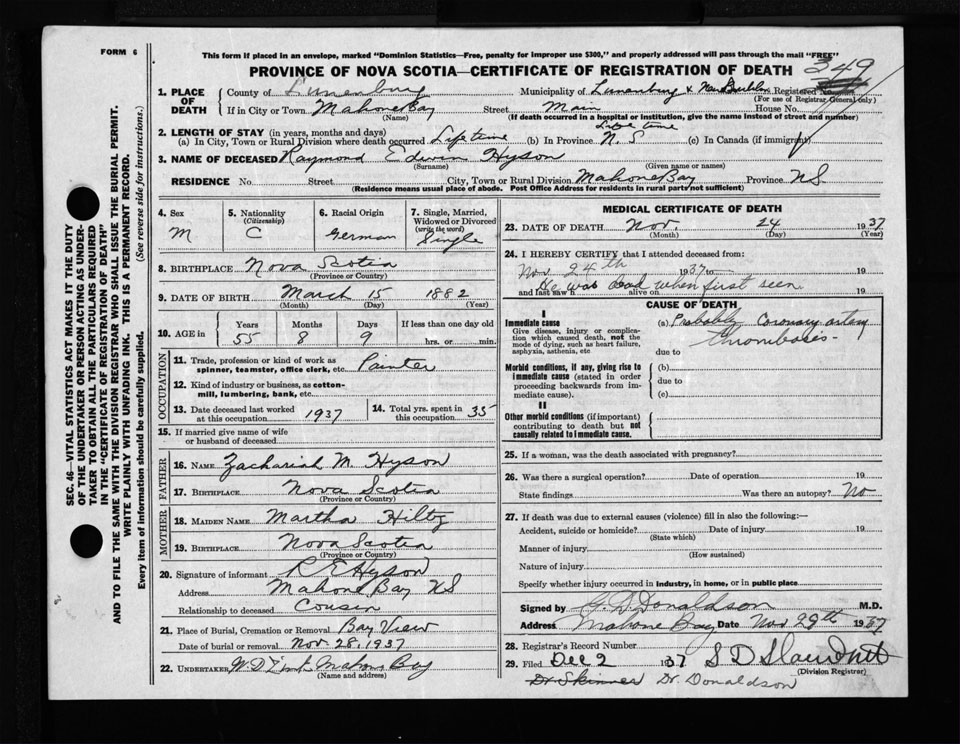 FORM 6
This form if placed in an envelope, marked "Dominion Statistics—Free, penalty for improper use $300," and properly addressed will pass through the mail "FREE"
PROVINCE OF NOVA SCOTIA—CERTIFICATE OF REGISTRATION OF DEATH
349
1. PLACE OF DEATH
County of Lunenburg Municipality of Lunenburg & New Dublin Registered No.
(For use of Registrar General only)
If in City or Town Mahone Bay Street Main House No.
(Name) (If death occurred in a hospital or institution, give the name instead of street and number)
2. LENGTH OF STAY (in years, months and days)
Life time
(a) In City, Town or Rural Division where death occurred Life time (b) In Province N.S (c) In Canada (if immigrant)
3. NAME OF DECEASED Raymond Edwin Hyson
(Surname) (Given name or names)
RESIDENCE No. Street City, Town or Rural Division Mahone Bay Province NS
(Residence means usual place of abode. Post Office Address for residents in rural parts not sufficient)
4. Sex M
5. Nationality (Citizenship) C
6. Racial Origin German
7. Single, Married, Widowed or Divorced (write the word) Single
8. BIRTHPLACE Nova Scotia
(Province or Country)
9. DATE OF BIRTH March 15 1882
(Month) (Day) (Year)
10. AGE in Years 55 Months 8 Days 9 If less than one day old hrs. or min.
OCCUPATION
11. Trade, profession or kind of work as spinner, teamster, office clerk, etc. Painter
12. Kind of industry or business, as cotton-mill, lumbering, bank, etc.
13. Date deceased last worked at this occupation 1937
14. Total yrs. spent in this occupation 35
15. If married give name of wife or husband of deceased
FATHER
16. NAME Zachariah M. Hyson
17. BIRTHPLACE Nova Scotia
(Province or Country)
MOTHER
18. MAIDEN NAME Martha Hiltz
19. BIRTHPLACE Nova Scotia
(Province or Country)
20. Signature of informant R E Hyson
Address Mahone Bay NS
Relationship to deceased Cousin
21. Place of Burial, Cremation or Removal Bay View
Date of burial or removal Nov. 28, 1937
22. UNDERTAKER W D Mahone Bay
(Name and address)
MEDICAL CERTIFICATE OF DEATH
23. DATE OF DEATH Nov. 24 1937
(Month) (Day) (Year)
24. I HEREBY CERTIFY that I attended deceased from:
Nov 24th 1937 to 19
and last saw h alive on 19
He was dead when first seen.
CAUSE OF DEATH
I
Immediate cause
Give disease, injury or complication which caused death, not the mode of dying, such as heart failure, asphyxia, asthenia, etc
(a) Probably Coronary artery Thrombosis-
due to
Morbid conditions, if any, giving rise to immediate cause (stated in order proceeding backwards from immediate cause).
(b)
due to
(c)
II
Other morbid conditions (if important) contributing to death but not causally related to immediate cause.
25. If a woman, was the death associated with pregnancy?
26. Was there a surgical operation? Date of operation 19
State findings Was there an autopsy? No
27. If death was due to external causes (violence) fill in also the following:—
Accident, suicide or homicide? Date of injury 19
(State which)
Manner of injury
(How sustained)
Nature of injury
Specify whether injury occurred in industry, in home, or in public place
Signed by G. D. Donaldson M.D.
Address Mahone Bay Date Nov 29th 1937
28. Registrar's Record Number
29. Filed Dec 2 1937
(Division Registrar)
Dr Skinner Dr. Donaldson
SEC. 46—VITAL STATISTICS ACT MAKES IT THE DUTY
OF THE UNDERTAKER OR PERSON ACTING AS UNDER-
TAKER TO OBTAIN ALL THE PARTICULARS REQUIRED
IN THE "CERTIFICATE OF REGISTRATION OF DEATH"
AND TO FILE THE SAME WITH THE DIVISION REGISTRAR WHO SHALL ISSUE THE BURIAL PERMIT.
WRITE PLAINLY WITH UNFADING INK. THIS IS A PERMANENT RECORD.
Every item of information should be carefully supplied. (See reverse side for instructions.)